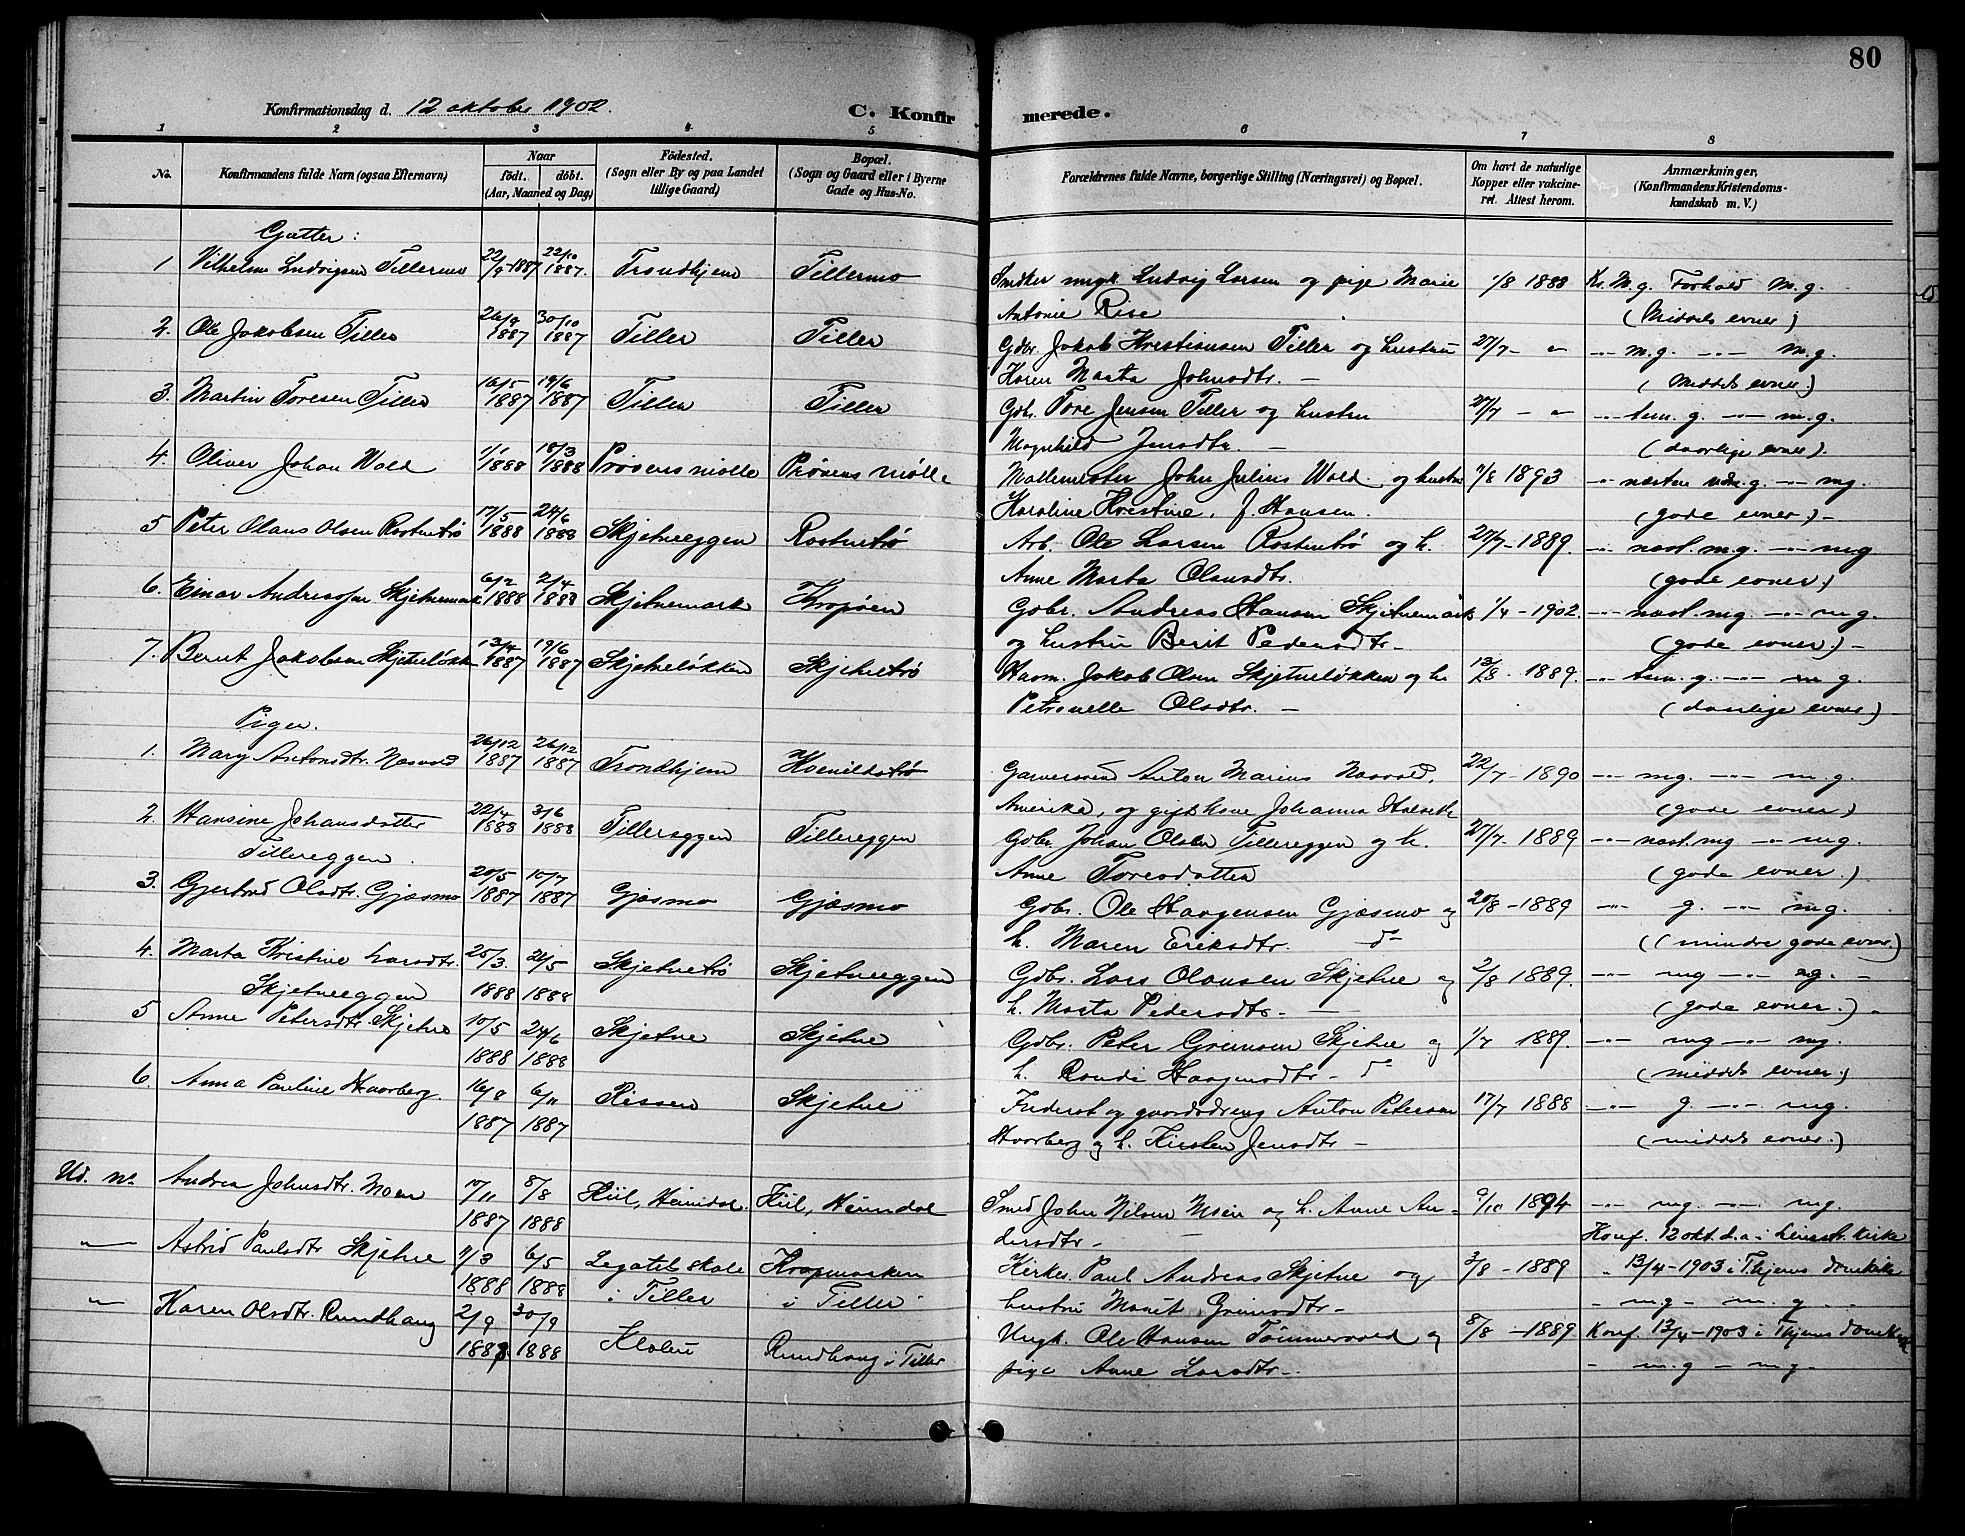 80
Konfirmationsdag d. 12 oktober 1902. C. Konfirmerede.
1 2 3 4 5 6 7 8
No. Konfirmandens fulde Navn (ogsaa Efternavn) Naar födt. döbt. (Aar, Maaned og Dag) Födested. (Sogn eller By og paa Landet tillige Gaard) Bopæl. (Sogn og Gaard eller i Byerne Gade og Hus-No. Forældrenes fulde Navne, borgerlige Stilling (Næringsvei) og Bopæl. Om havt de naturlige Kopper eller vakcineret. Attest herom. Anmærkninger, (Konfirmandens Kristendomskundskab m. V.)
Gutter:
1 Vilhelm Ludvigsen Tillermo 22/9-1887 22/10 1887. Trondhjem Tillermo Snedker ungk. Ludvig Larsen og pige Marie 1/8 1888 Kr. M.g. Forhold M.g.
Antonie Rise (Middels evner)
2. Ole Jakobsen Tiller 26/9 1887 30/10 1887 Tiller Tiller Gdbr. Jakob Kristiansen Tiller og hustru 27/7 - " -"- m.g. -"- m.g.
Karen Marta Johnsdtr. - (Middels evner.)
3. Martin Toresen Tiller 16/5 1887 19/6 1887 Tiller Tiller Gdbr. Tore Jensen Tiller og hustru 27/7 - " -"- tem. g. -"- m.g.
Magnhild Jensdtr - (daarlige evner).
4. Oliver Johan Wold 1/1 1888 18/3 1888 Prøvens mølle Prøvens mølle Møllemester John Julius Wold og hustru 1/8 1893 -"- næsten m.g. -"- mg.
Karoline Kristine, f. Hansen. (gode evner) -
5 Peter Olaus Olsen Rostentrø 17/5 1888 24/6 1888 Skjetneeggen Rostentrø Arb. Ole Larsen Rostentrø og h. 27/7-1889. -"- næst. m.g. -"- mg
Anne Marta Olausdtr. (gode evner.)
6. Einar Andreassen Skjetnemark 6/2 1888 2/4 1888 Skjetnemark Kropøen Gdbr. Andreas Hansen Skjetnemark 1/4 - 1902. -"- næst. mg. -"- mg.
og hustru Berit Pedersdtr- (gode evner.) -
7. Bernt Jakobsen Skjetneløkk. 13/4 1887 19/6 1887 Skjetneløkken Skjetnetrø Husm. Jakob Olsen Skjetneløkken og h. 12/8 - 1889. -"- tem. g. -"- m g.
Petronelle Olsdtr. - (daarlige evner) -
Piger.
1. Mary Antonsdtr. Næsvold 26/12 1887 26/12 1887 Trondhjem Kvenildstrø Garversvend Anton Marius Næsvold, 22/7 - 1890 -"- mg. -"- m.g.
Amerika, og gift kone Johanna Halseth (gode evner)
2. Hansine Johansdatter 22/4 1888 3/6 1888 Tillereggen Tillereggen Gdbr. Johan Olsen Tillereggen og h. 27/7- 1889 -"- næst. mg -"- mg.
Tillereggen. Anne Toresdatter (gode evner.)
3. Gjertrud Olsdtr. Gjæsmo 20/5 1887 10/7 1887 Gjæsmo Gjæsmo Gdbr. Ole Haagensen Gjæsmo og 20/8 - 1889 -"- g. -"- mg.
h. Maren Eriksdtr. (mindre gode evner.)
4. Marta Kristine Larsdtr. 25/3. 1888 21/5 1888 Skjetnetrø Skjetneeggen Gdbr. Lars Olausen Skjetne og 2/8 1889. -"- mg -"-
Skjetneeggen h. Marta Pedersdtr. - (gode evner.) -
5 Anne Petersdtr. Skjetne 10/5 1888 24/6 1888 Skjetne Skjetne Gdbr. Peter Grimsen Skjetne og 1/7 1889. -"- mg -"- mg.
h. Randi Haagensdtr - (middels evner.)
6 Anna Pauline Haarberg 16/8 1887 6/11 1887 Rissen Skjetne Inderst og gaardsdreng Anton Petersen 17/7 1888 -"- g. -"- mg.
Haarberg og h. Kirsten Jensdtr - (middels evner.)
Ud. n. Andrea Johnsdtr. Moen 17/11 1887 8/8 1888 Kiil, Heimdal. Kiil, Heimdal Smed John Nilsen Moen og h. Anne An- 9/10 1894 -"- mg. -"- mg.
dersdtr - Konf. 12 okt. d.a. i Leinstr. kirke
-"- Astrid Paulsdtr Skjetne 7/3 1888 6/5 1888 Legatskole i Tiller Kropmarken i Tiller Kirkes. Paul Andreas Skjetne og 3/8 - 1889 " 13/4-1903 i Thjems domkirke
hustru Marit Grimsdtr - - mg - m. g.
-"- Karen Olsdtr. Rundhaug 2/9 1888 30/9 1888 Klæbu Rundhaug i Tiller Ungk. Ole Hansen Tømmervold og 8/8 - 1889 Konf. 13/4-1903 i Thjems domkirke
pige Anne Larsdtr - - m.g - mg -